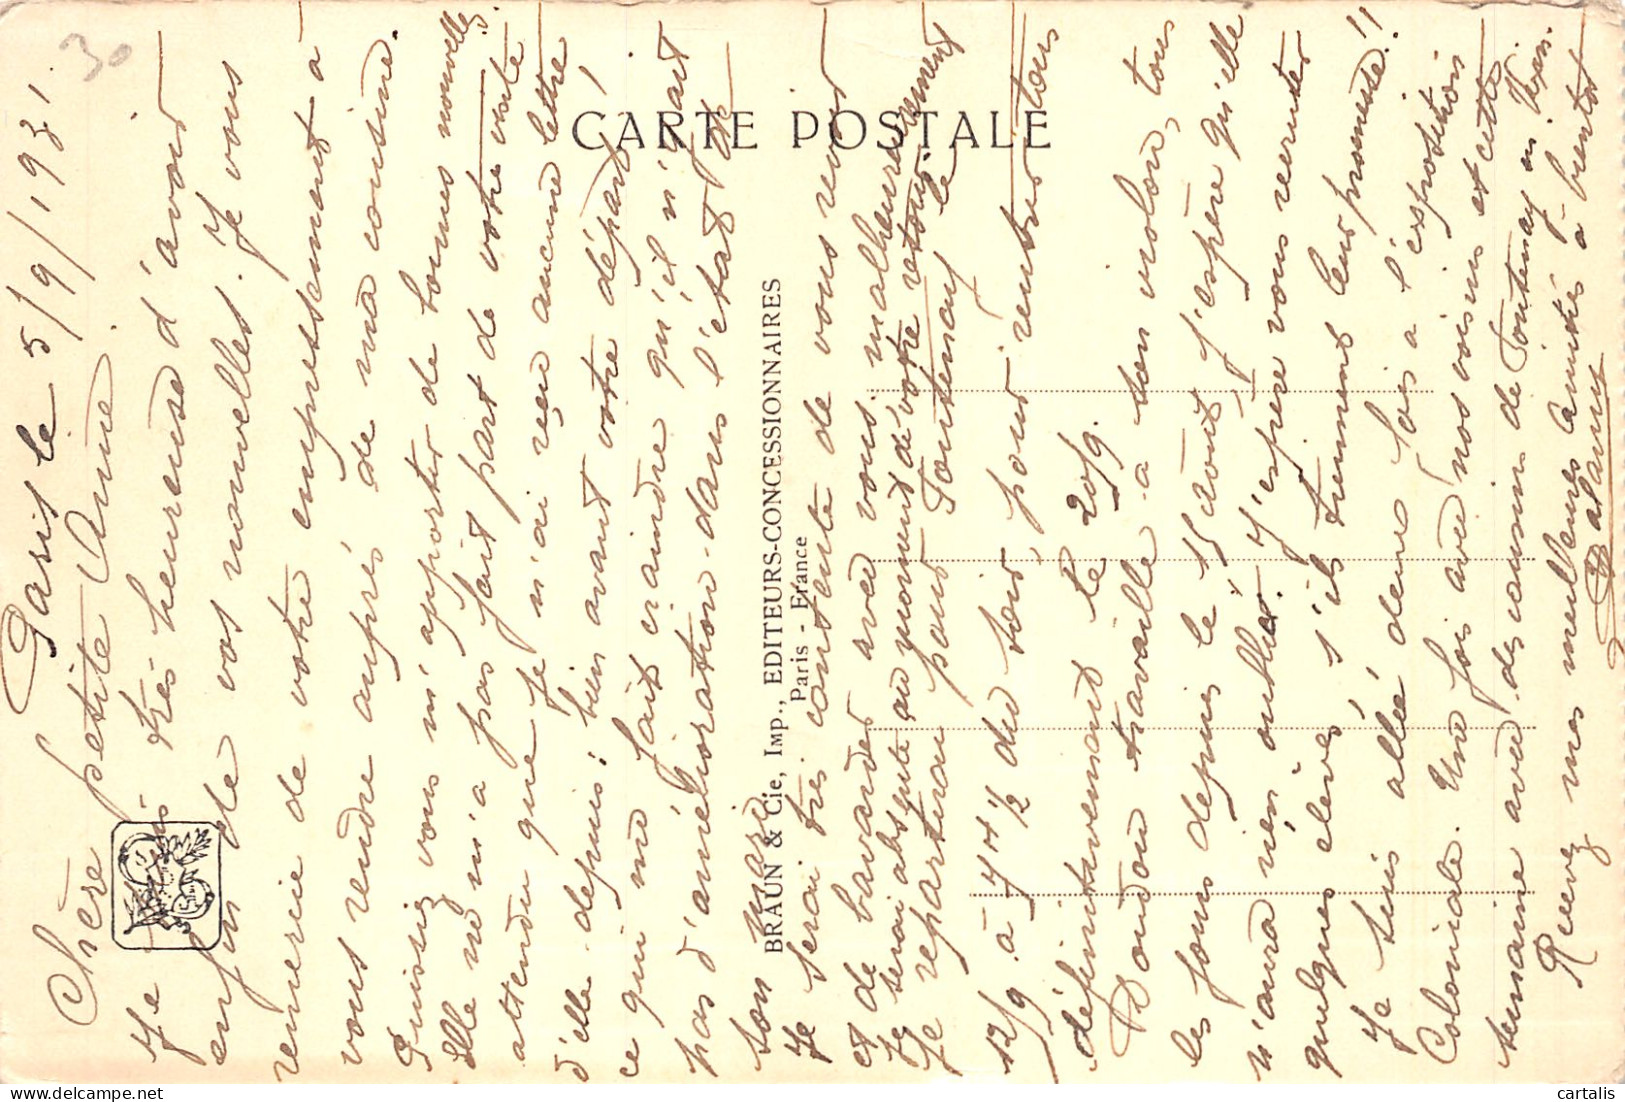 CARTE POSTALE
BRAUN & Cie, Imp., EDITEURS-CONCESSIONNAIRES
Paris - France
30
Paris le 5/9/1931
Chère petite Anne.
Je suis très heureuse d'avoir
enfin de vos nouvelles. Je vous
remercie de votre empressement à
vous rendre auprès de ma cousine.
Puissiez vous m'apporter de bonnes nouvelles
Elle ne m'a pas fait part de votre visite
attendu que je n'ai reçu aucune lettre
d'elle depuis; bien avant votre départ!
ce qui me fait craindre qu'il n'y ait
pas d'amélioration dans l'état de
son mari
Je serai très contente de vous revoir
et de bavarder avec vous malheureusement
je serai absente au moment de votre retour.
Je repartirai pour Fontenay le
12/9 à 7h ½ du soir, pour rentrer tous
définitivement le 20/9.
Doudou travaille à son violon, tous
les jours depuis le 15 août j'espère qu'elle
n'aura rien oublié. J'espère vous recruter
quelques élèves s'ils tiennent leur promesse!!
Je suis allée deux fois à l'exposition
Coloniale. Une fois avec nos voisins et cette
semaine avec des cousins de Fontenay en Vexin.
Recevez mes meilleures amitiés à bientôt
cartalis